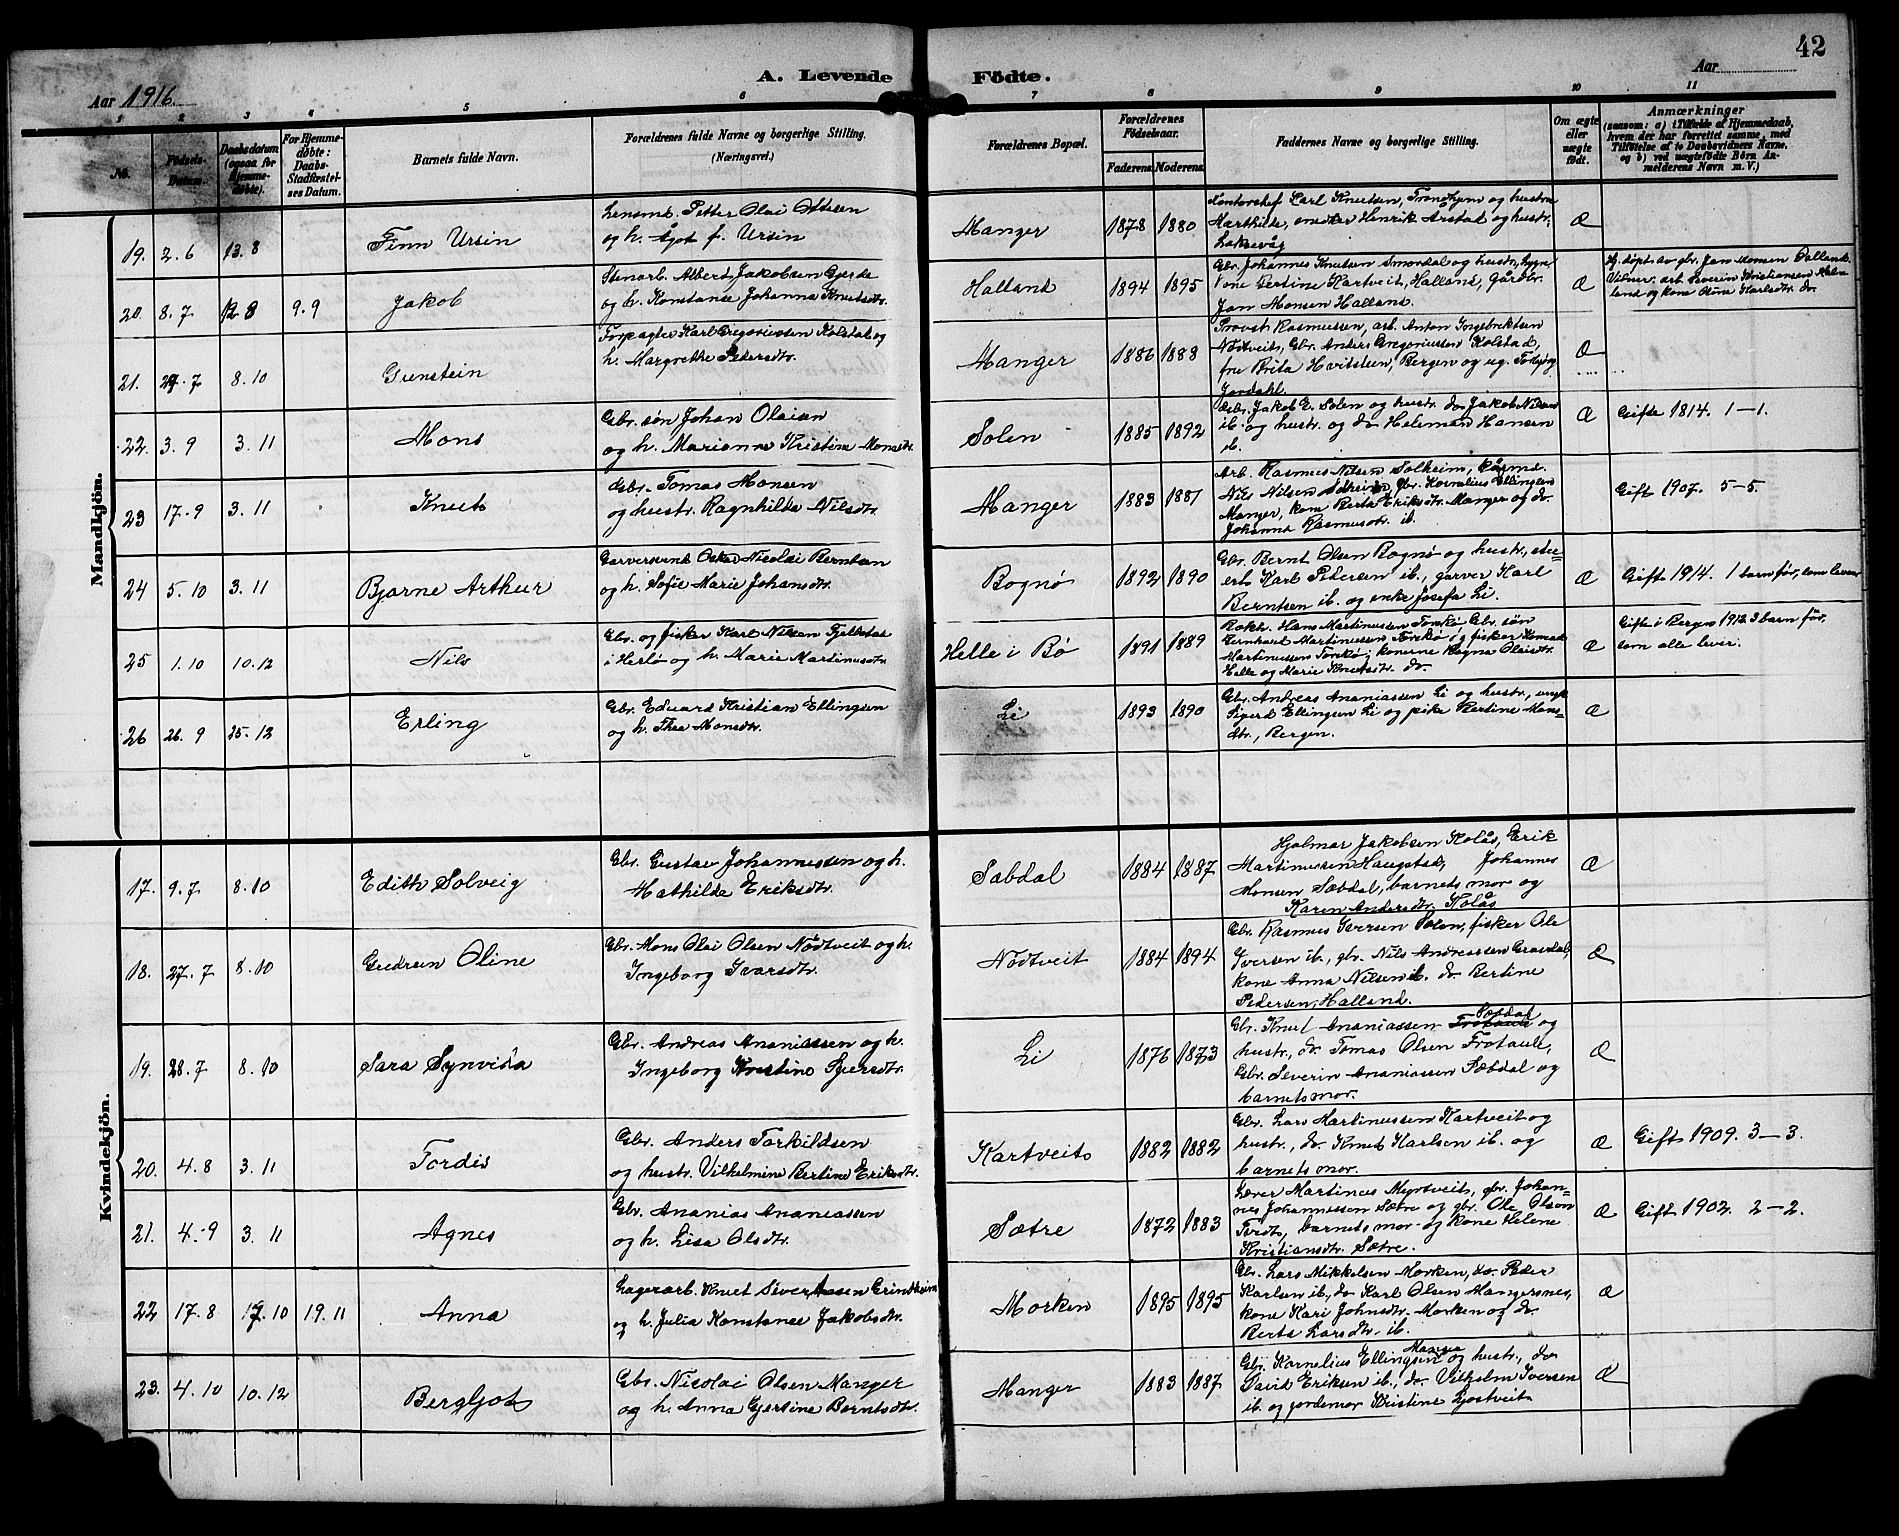 42
A. Levende Födte.
Aar 1916.
Aar
1 2 3 4 5 6 7 8 9 10 11
No.
Födsels-
Datum.
Daabsdatum
(ogsaa for
Hjemme-
döbte).
For Hjemme-
döbte:
Daabs-
Stadfæstel-
ses Datum.
Barnets fulde Navn.
Forældrenes fulde Navne og borgerlige Stilling.
(Næringsvei.)
Forældrenes Bopæl.
Forældrenes
Födselsaar.
Faderens. Moderens.
Faddernes Navne og borgerlige Stilling.
Om ægte
eller
uægte
födt.
Anmærkninger
(saasom: a) i Tilfælde af Hjemmedaab,
hvem der har forrettet samme, med
Tilföielse af to Daabsvidners Navne.
og b) ved uægtefödte Börn An-
melderens Navn m. V.)
Mandkjön.
19. 2.6 13.8 Finn Ursin
Lensmd. Petter Olai Ottesen
og h. Ågot f. Ursin
Manger 1878 1880
Kontorchef Carl Knutsen, Trondhjem og hustru
Marthilde, Henrik Årstad og hustr.
Laksevåg
Æ
20. 8.7 12.8 9.9 Jakob
Stenarb. Albert Jakobsen Gjerde
og h. Konstanse Johanna Knutsdtr.
Halland 1894 1895
Gbr. Johannes Knutsen Smordal og hustr,
kone Bertine Kartveit, Halland, gårdbr.
Jan Monsen Halland.
Æ
Hj. døpt av gbr. Jan Monsen Halland.
Vitner: arb. Severin Kristiansen Hal-
land og kone Oline Karlsdtr. do.
21. 29.7 8.10 Grenstein
Forpagter Karl Gregoriussen Kolstad og
h. Margrethe Pedersdtr.
Manger 1886 1888
Provst Rasmussen, arb. Anton Ingebriktsen
Nødtveit, Gbr. Anders Gregoriussen Kolstad,
fru Brita Hvitsteen, Bergen og ug. Torbjørg
Jordahl.
Æ
22. 3.9 3.11 Mons
Gbr. søn Johan Olaisen
og h. Marianne Kristine Monsdtr.
Solen 1885 1892
Gbr. Jakob E. Solen og hustr. do. Jakob Nilsen
ib. og hustr. og do Heleman Hansen
ib.
Æ
Gifte 1814. 1–1.
23 17.9 3.11 Knut
Gbr. Tomas Monsen
og hustr. Ragnhilda Nilsdtr.
Manger 1883 1881
Arb. Rasmus Nilsen Solheim,
Nils Nilsen Solheim, gbr. Kornelius Ellingsen
Manger, kone Berta Eriksdtr. Manger og do.
Johanna Rasmusdtr. ib.
Gift 1907. 5–5.
24 5.10 3.11 Bjarne Arthur
Garversvend Oskar Nicolai Berntsen
og h. Sofie Marie Johansdtr.
Bognø 1892 1890
Gbr. Bernt Olsen Bognø og hustr.,
Karl Pedersen ib., garver Karl
Berntsen ib. og enke Josefa Li.
Æ
Gift 1914. 1 barn før, som lever
25 1.10 10.12 Nils
Gbr. og fisker Karl Nilsen Fjeldstad
i Herlø og h. Marie Martinusdtr.
Helle i Bø 1891 1889
Bokh. Hans Martinussen Toskø Gbr. søn
Bernhard Martinussen Toskø, fisker
Martinussen Toskø, konerne Ragna Olaisdtr.
Helle og Marie Knutsdtr. do.
Æ
Gift i Bergen 1912 3 barn før,
som alle lever.
26 26.9 25.12 Erling
Gbr. Eduard Kristian Ellingsen
og h. Thea Monsdtr.
Li 1893 1890
Gbr. Andreas Ananiassen Li og hustr., ungk
Sigurd Ellingsen Li og pike Bertine Mons-
dtr., Bergen.
Æ
Kvindekjön.
17. 9.7 8.10 Edith Solveig
Gbr. Gustav Johannessen og h.
Mathilda Eriksdtr.
Sæbdal 1884 1887
Hjalmar Jakobsen Kolås, Erik
Martinussen Haugstad, Johannes
Monsen Sæbdal, barnets mor og
Karen Andersdtr. Kolås
Æ
18. 27.7 8.10 Gudrun Oline
Gbr. Mons Olai Olsen Nödtveit og h.
Ingeborg Ivarsdtr.
Nödtveit 1884 1894
Gbr. Rasmus Iversen Solen, fisker Ole
Iversen ib., gbr. Nils Andreassen Grasdal,
kone Anna Nilsen ib. do Bertine
Pedersen, Halland.
Æ
19. 28.7 8.10 Sara Synvida
Gbr. Andreas Ananiassen og h.
Ingeborg Kristine Sjursdtr.
Li 1876 1873
Sæbdal
Gbr. Knut Ananiassen Frotaule og
hustr., do. Tomas Olsen Frotaule,
Gbr. Severin Ananiassen Sæbdal og
barnets mor.
Æ
20. 4.8 3.11 Tordis
Gbr. Anders Torkildsen
og hustr. Vilhelmine Bertine Eriksdtr.
Kartveit 1882 1882
Gbr. Lars Martinussen Kartveit og
hustr., do. Knut Karlsen ib. og
barnets mor.
Æ
Gift 1909. 3–3.
21. 4.9 3.11 Agnes
Gbr. Ananias Ananiassen
og h. Lisa Olsdtr.
Sætre 1872 1883
Lærer Martinus Myrtveit, gbr. Johan-
nes Johannessen Sætre og gbr. Ole Olson
Tveit, barnets mor og kone Helene
Kristiansdtr. Sætre.
Æ
Gift 1902. 2–2.
22 17.8 19.10 19.11 Anna
Lagerarb. Knut Sivertssen Grindheim
og h. Julia Konstanse Jakobsdtr.
Morken 1895 1895
Gbr. Lars Mikkelsen Morken, do. Peder
Karlsen ib., do Karl Olsen Mangersnes,
kone Kari Johnsdtr. Morken og do.
Berta Larsdtr. ib.
Æ
23. 4.10 10.12 Bergljot
Gbr. Nicolai Olsen Manger
og h. Anna Gjertine Berntsdtr.
Manger 1883 1887
Manger
Gbr. Kornelius Ellingsen og hustr., do
David Eriksen ib., do. Vilhelm Iversen
ib. og jordemor Kristine Ljostveit
Æ